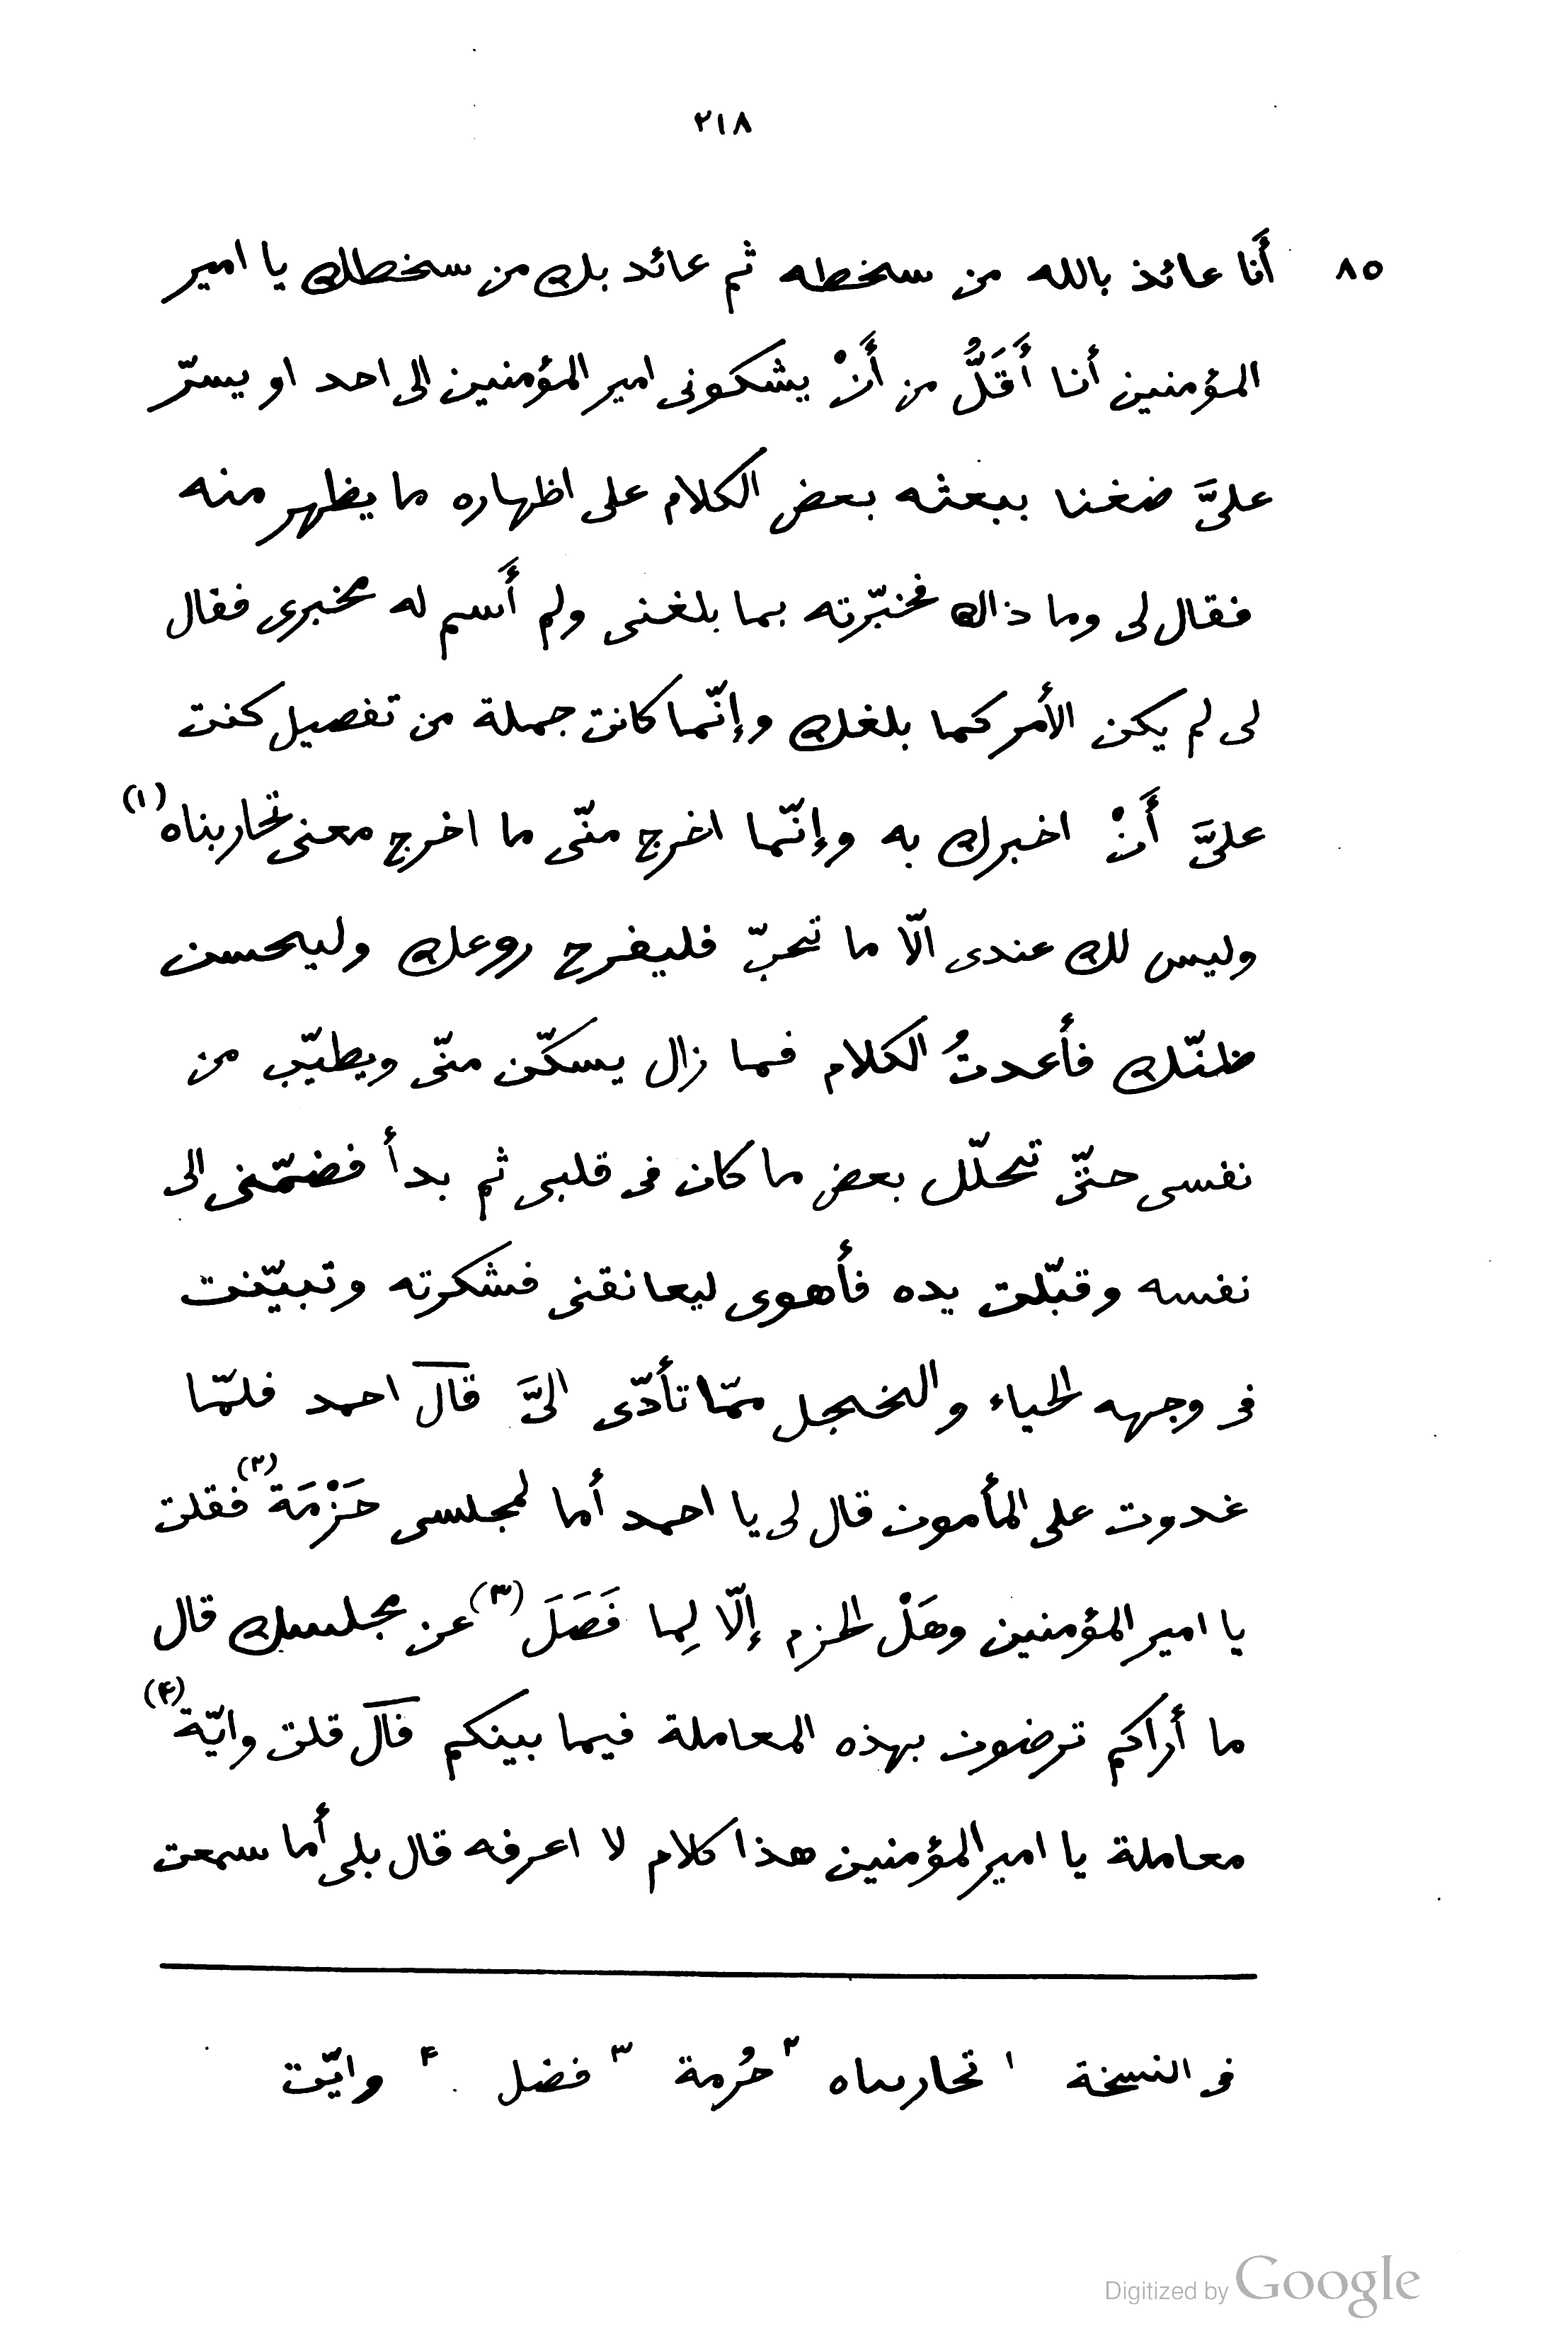 ٢١٨
٨٥ أَنا عائذ بالله من سخطه ثم عائد بك من سخطك يا امير
المؤمنين أنا أَقَلُّ من أَنْ يشكونى امير المؤمنين الى احد او يسرّ
علىَّ ضغنا ببعثه بعض الكلام على اظهاره ما يظهر منه
فقال لى وما ذاك فخبّرته بما بلغنى ولم أَسم له مخبرى فقال
لى لم يكن الأمر كما بلغك وإنّما كانت جملة من تفصيل كنت
علىَّ أَنْ اخبرك به وإنّما اخرج منّى ما اخرج معنى تحاربناه (١)
وليس لك عندى الّا ما تحبّ فليفرح روعك وليحسن
ظنّك فأعدتُ الكلام فما زال يسكّن منّى ويطيّب من
نفسى حتّى تحلّل بعض ما كان فى قلبى ثم بدأ فضمّنى الى
نفسه وقبّلت يده فأهوى ليعانقنى فشكرته وتبيّنت
فى وجهه الحياء والخجل ممّا تأدّى الىَّ قال احمد فلمّا
غدوت على المأمون قال لى يا احمد أما لمجلسى حَزْمَة (٢) فقلت
يا امير المؤمنين وهَلْ الحزم إلّا لِما فَصَلَ (٣) عن مجلسك قال
ما أراكم ترضون بهذه المعاملة فيما بينكم قال قلت وايّة (۴)
معاملة يا امير المؤمنين هذا كلام لا اعرفه قال بلى أما سمعت
فى النسخة ١ تحارىىاه ٢ حُرمة ٣ فضل ۴ وايّت
Digitized by Google